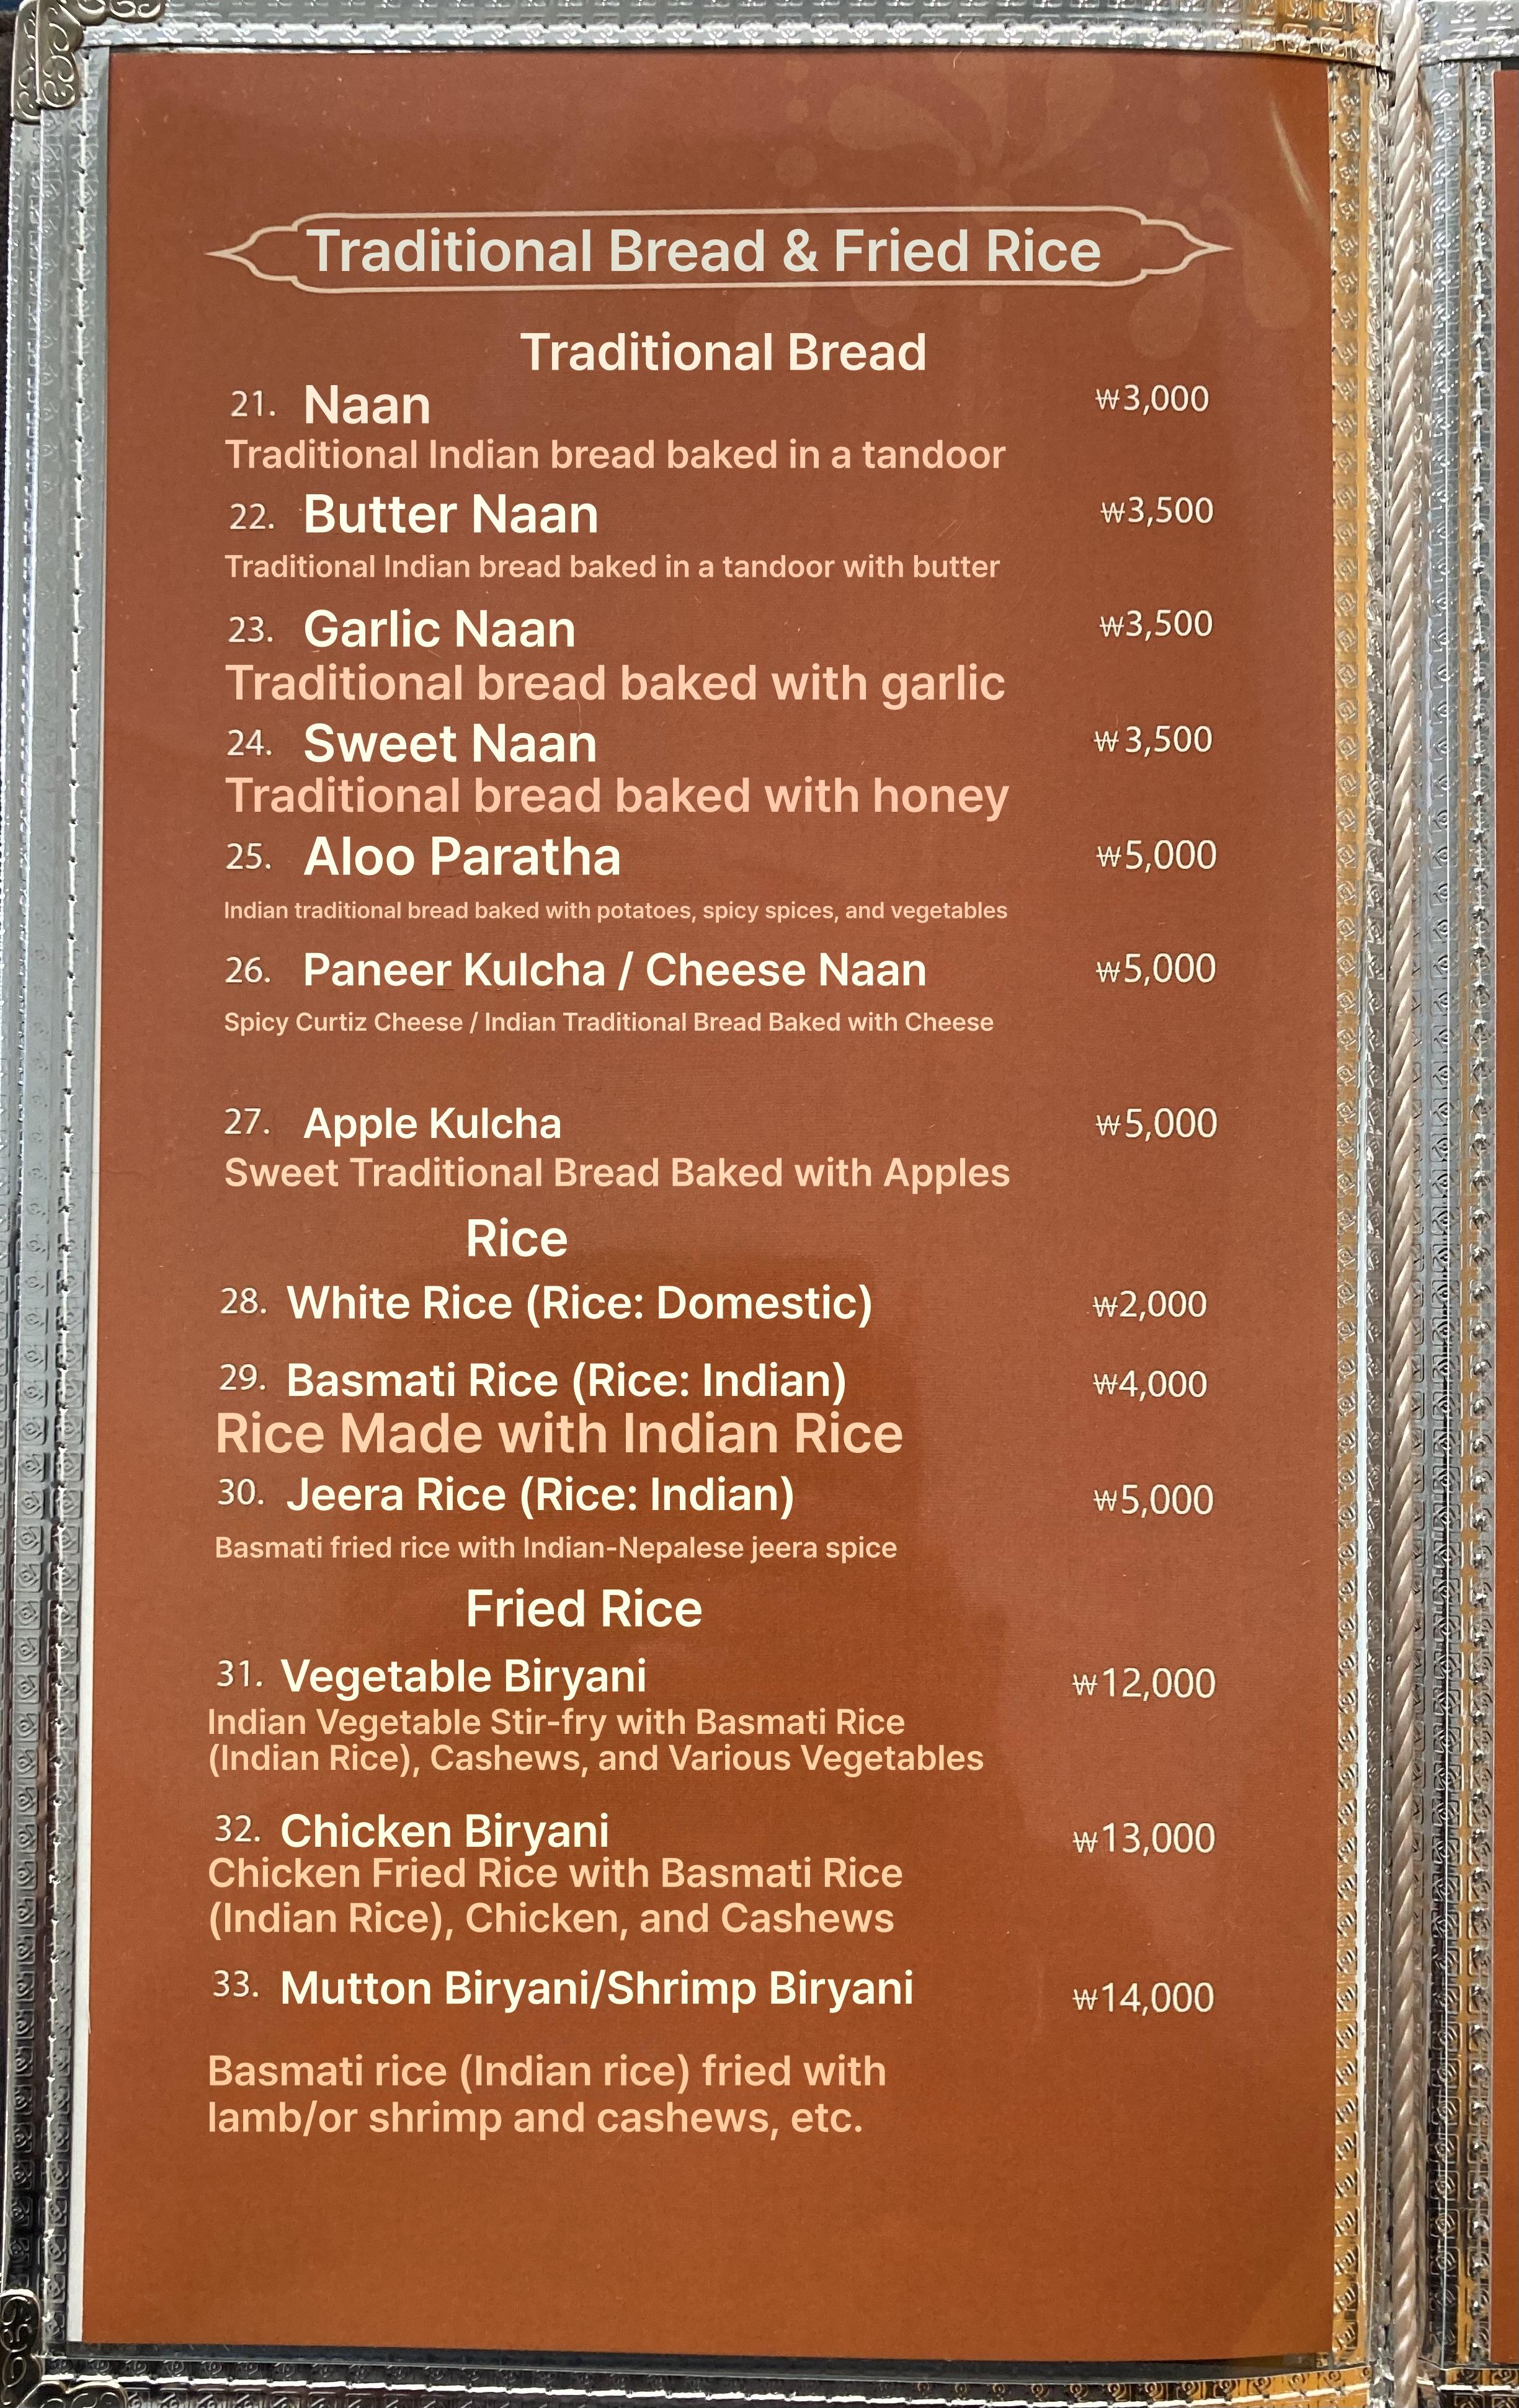 Traditional Bread & Fried Rice
Traditional Bread
21. Naan ₩3,000
Traditional Indian bread baked in a tandoor
22. Butter Naan ₩3,500
Traditional Indian bread baked in a tandoor with butter
23. Garlic Naan ₩3,500
Traditional bread baked with garlic
24. Sweet Naan ₩3,500
Traditional bread baked with honey
25. Aloo Paratha ₩5,000
Indian traditional bread baked with potatoes, spicy spices, and vegetables
26. Paneer Kulcha / Cheese Naan ₩5,000
Spicy Curtiz Cheese / Indian Traditional Bread Baked with Cheese
27. Apple Kulcha ₩5,000
Sweet Traditional Bread Baked with Apples
Rice
28. White Rice (Rice: Domestic) ₩2,000
29. Basmati Rice (Rice: Indian) ₩4,000
Rice Made with Indian Rice
30. Jeera Rice (Rice: Indian) ₩5,000
Basmati fried rice with Indian-Nepalese jeera spice
Fried Rice
31. Vegetable Biryani ₩12,000
Indian Vegetable Stir-fry with Basmati Rice
(Indian Rice), Cashews, and Various Vegetables
32. Chicken Biryani ₩13,000
Chicken Fried Rice with Basmati Rice
(Indian Rice), Chicken, and Cashews
33. Mutton Biryani/Shrimp Biryani ₩14,000
Basmati rice (Indian rice) fried with
lamb/or shrimp and cashews, etc.